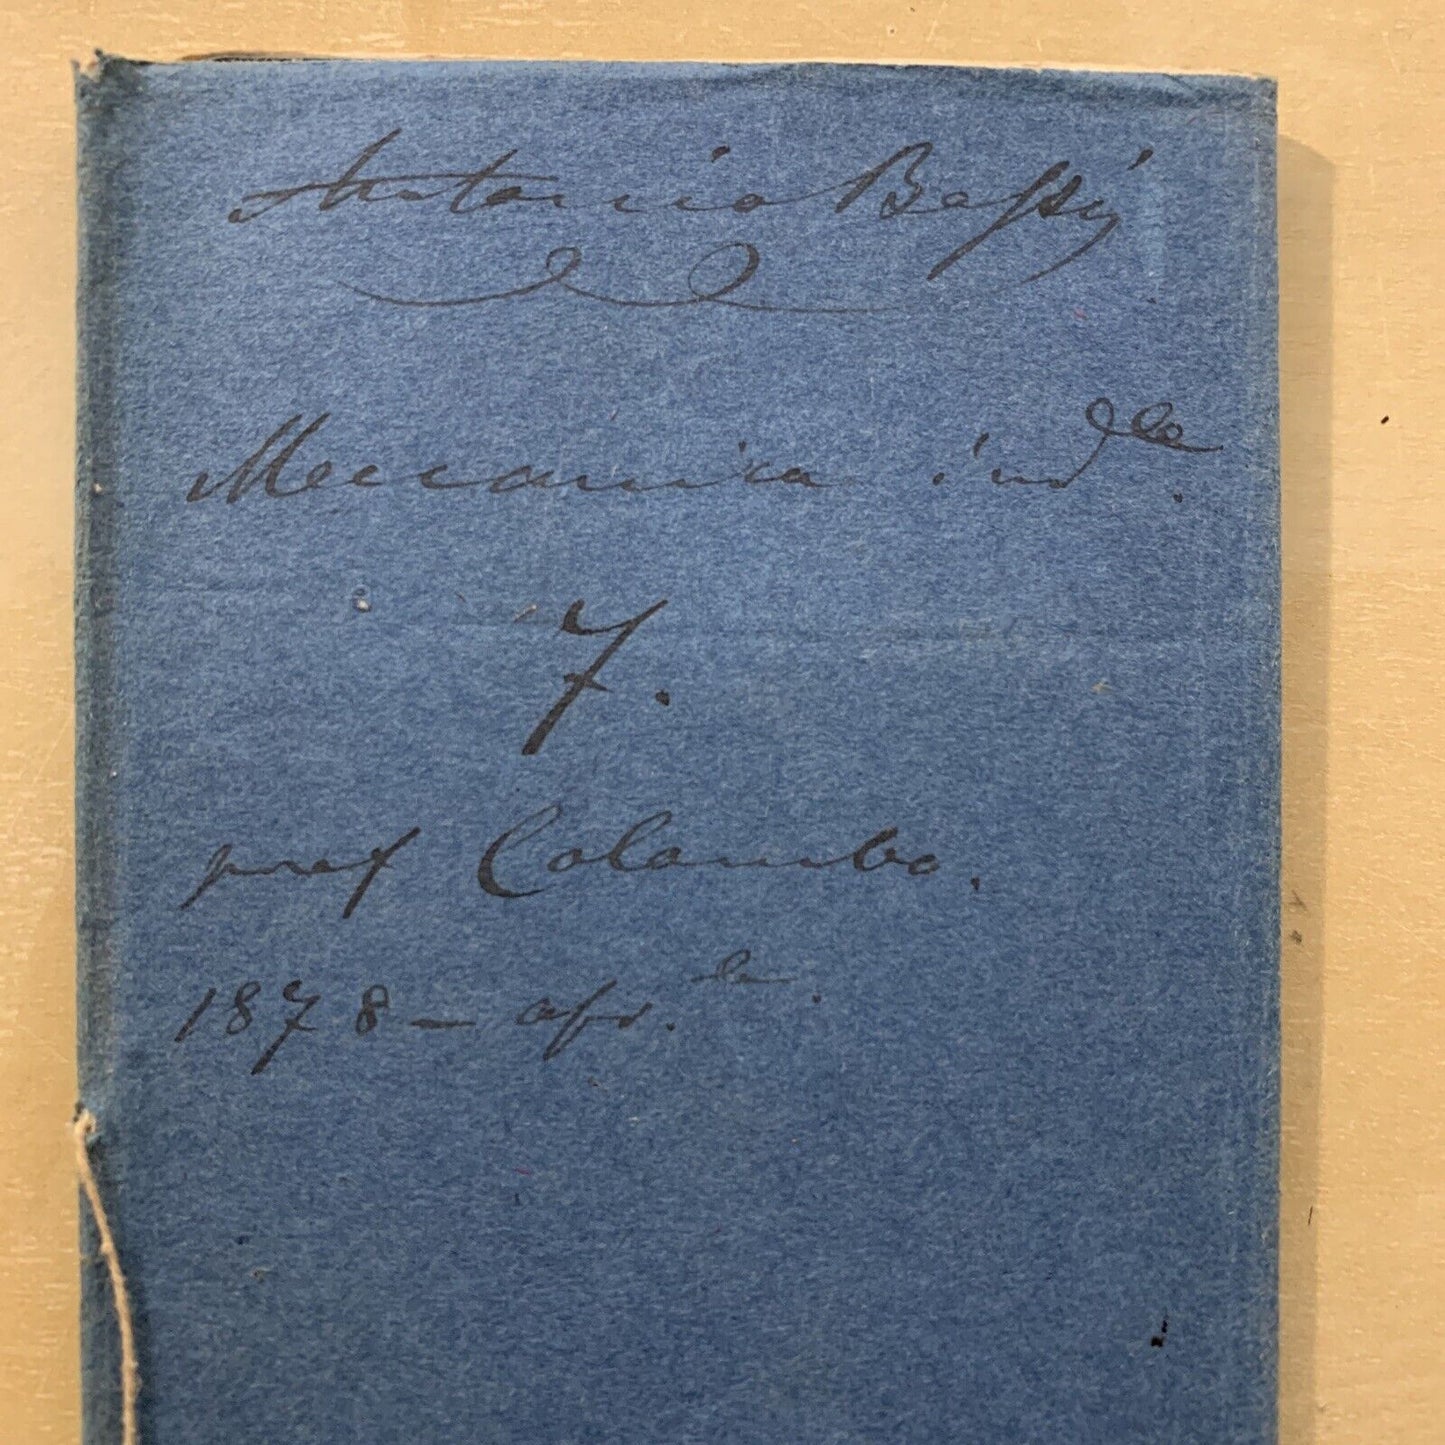 Antonio Bassi
Meccanica ind.le
7.
prof Colombo.
1878 – apr.le.